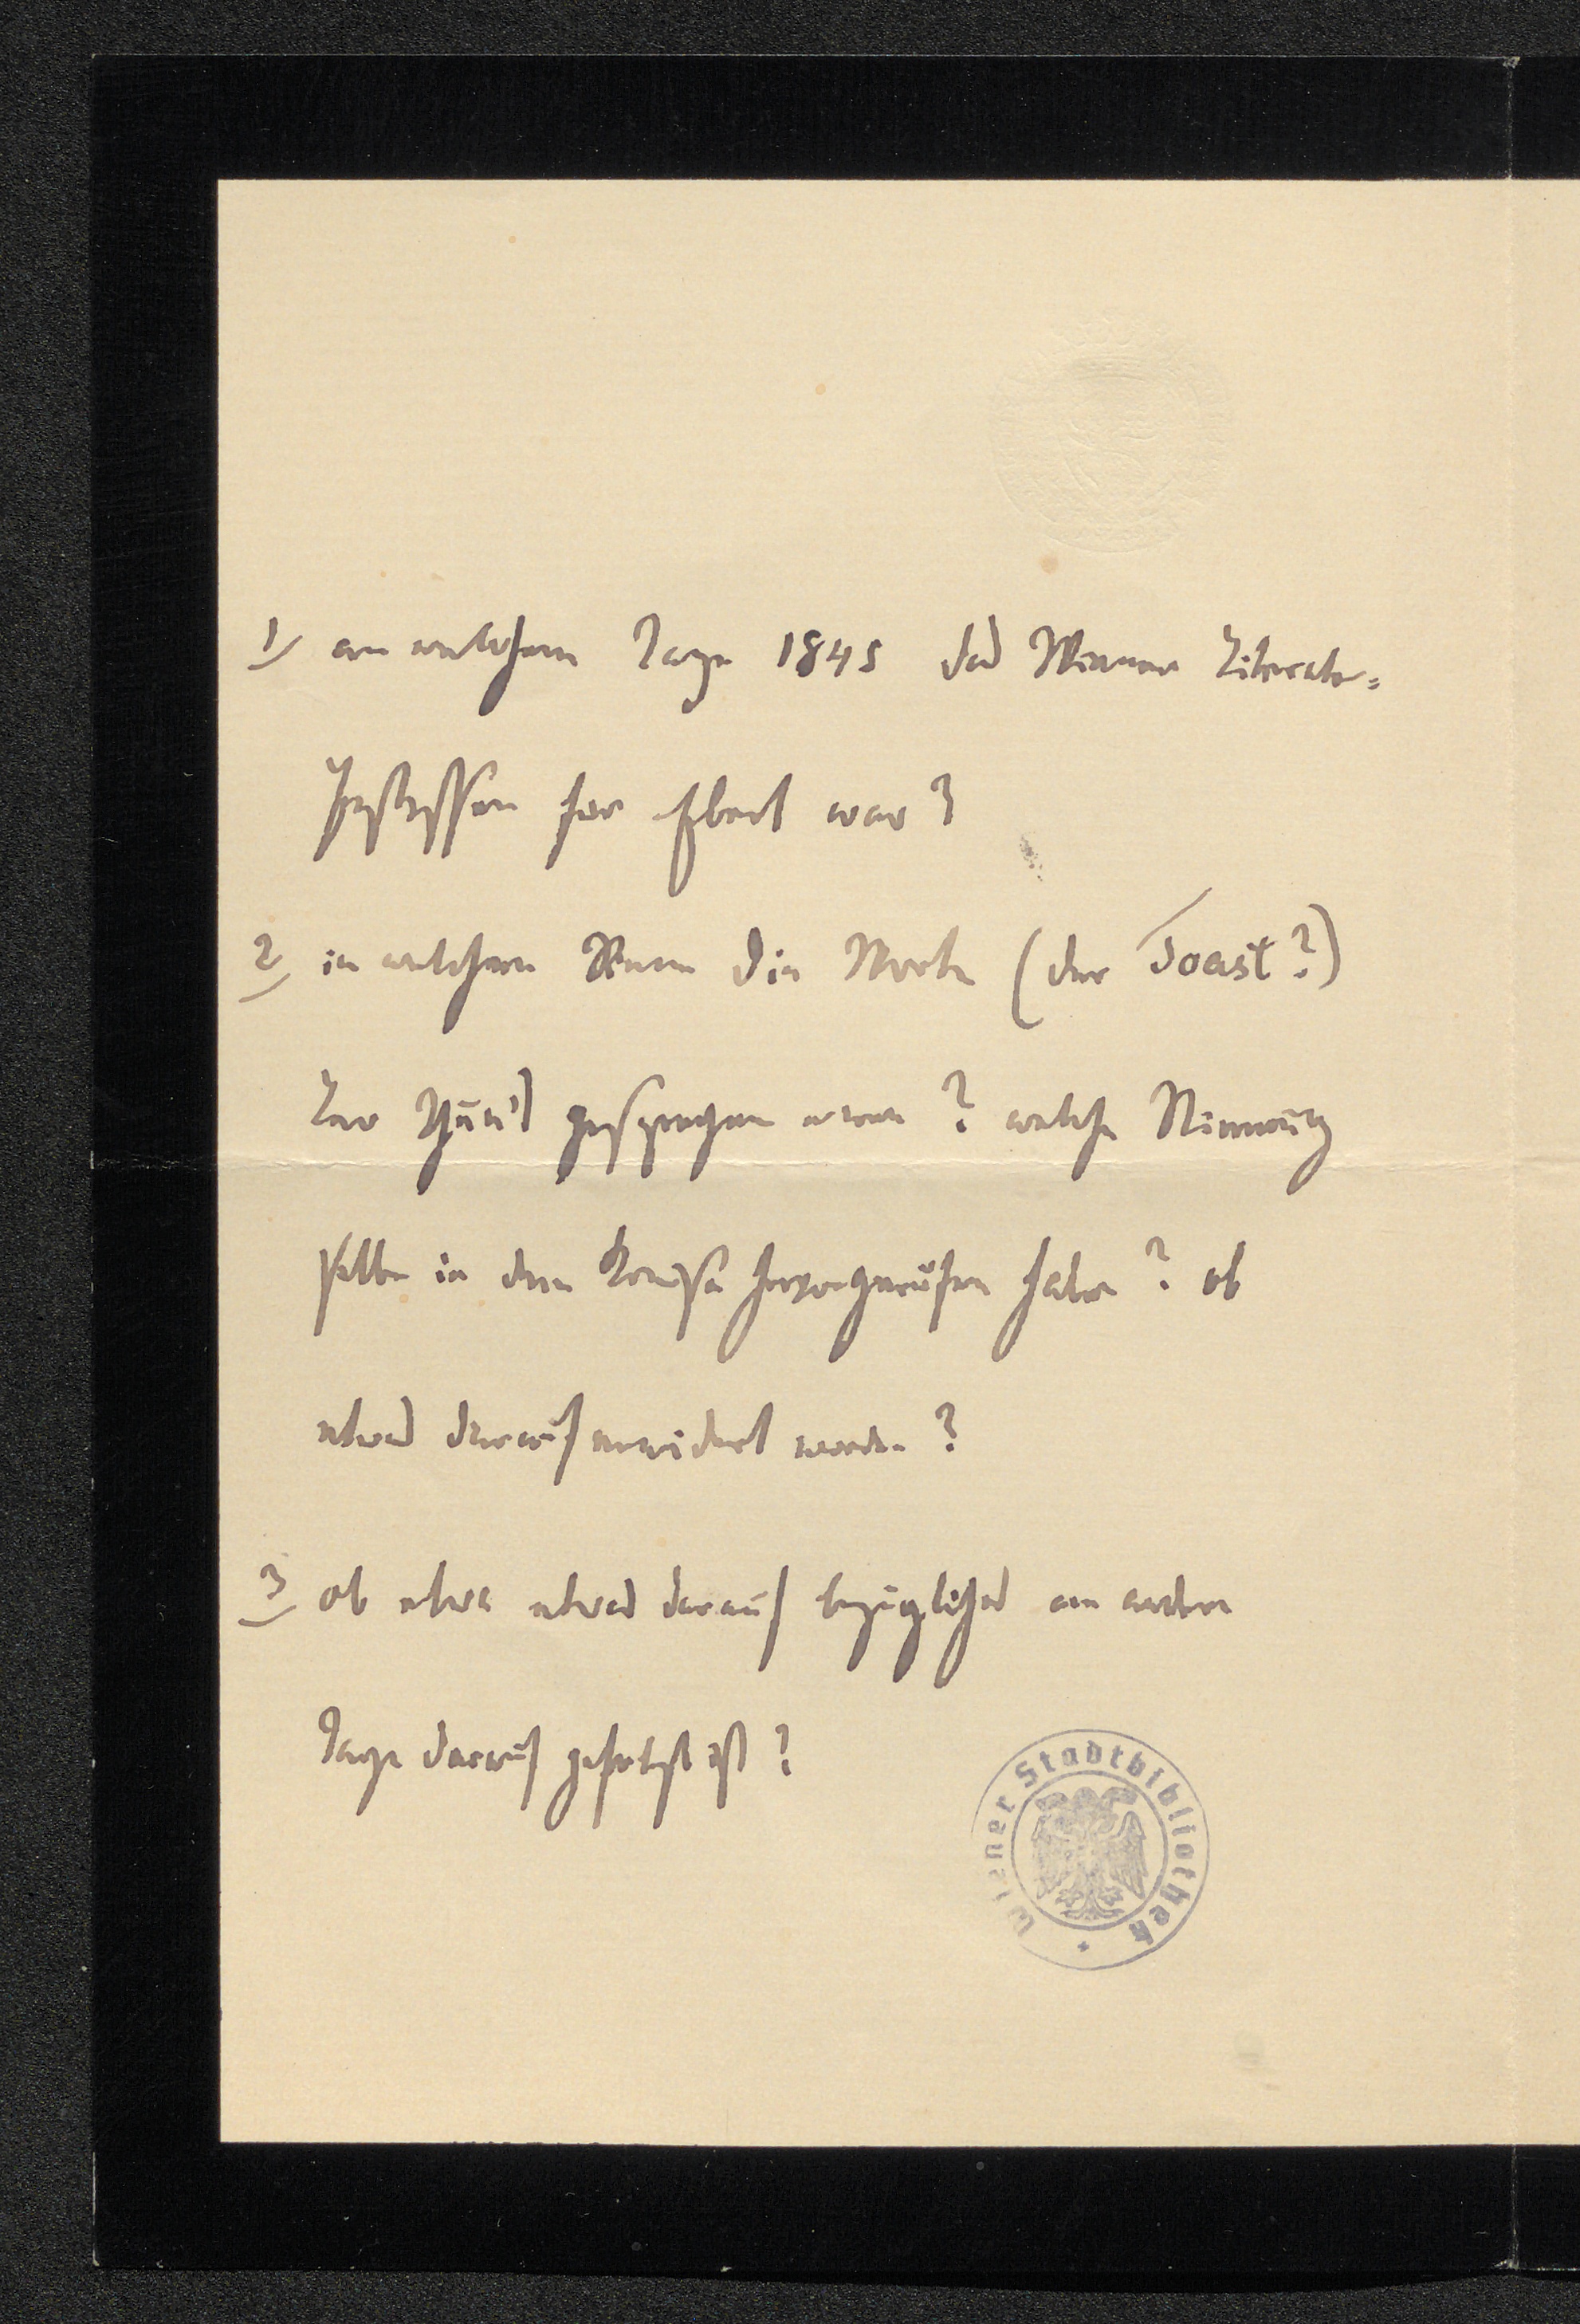 1/ an welchem Tage 1845 das Wiener Literaten=
Festessen für Ebert war?
2/ in welchem Sinne die Worte (der Toast?)
gesprochen waren? welche Stimmung
selbe in dem Kreise hervorgerufen haben? ob
etwas darauf erwidert worden?
3/ ob etwa etwas darauf bezügliches am andern
Tage darauf gefolgt ist?
Wiener Stadtbibliothek